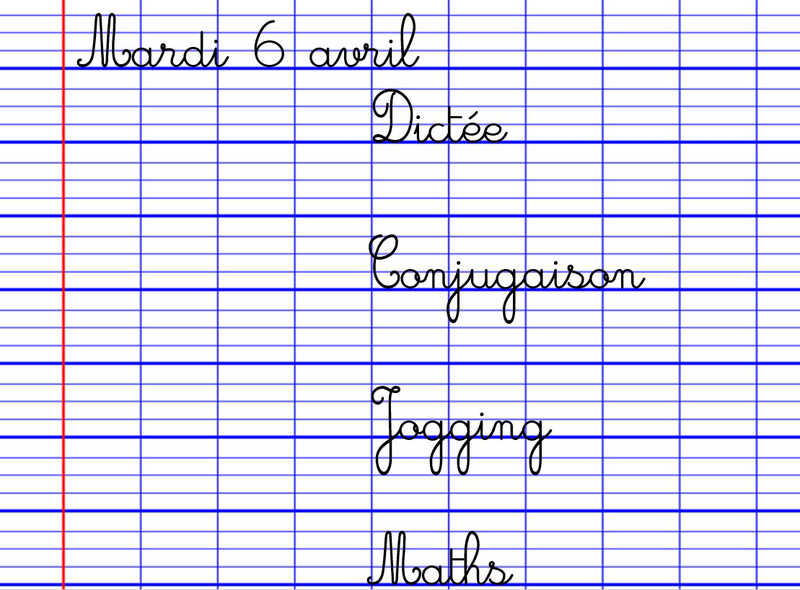 Mardi 6 avril
Dictée
Conjugaison
Jogging
Maths